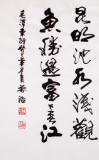 昆明池水淺觀
魚勝過富春江
毛澤東詩